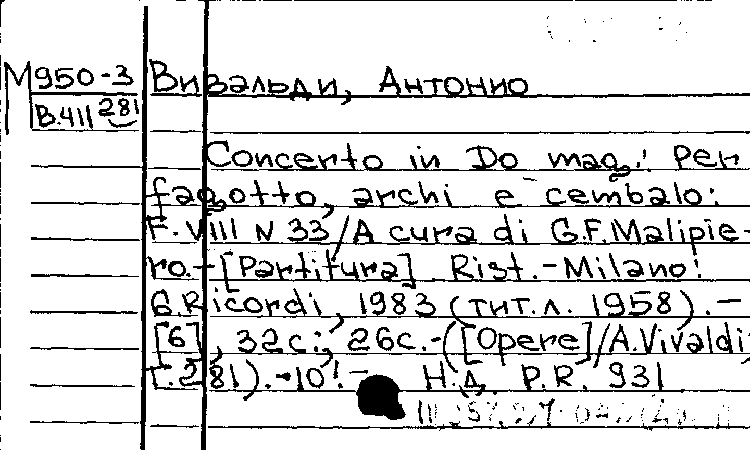 М950-3
В.411 281
Вивальди, Антонио
Concerto in Do mag.: Per
fagotto, archi e cembalo:
F. VIII N 33/A cura di G.F.Malipie-
ro.-[Partitura]. Rist.-Milano:
G.Ricordi, 1983 (тит.л. 1958).-
[6], 32с.; 26с.-([Opere]/A.Vivaldi;
T.281).-10!- Н.д. P.R. 931